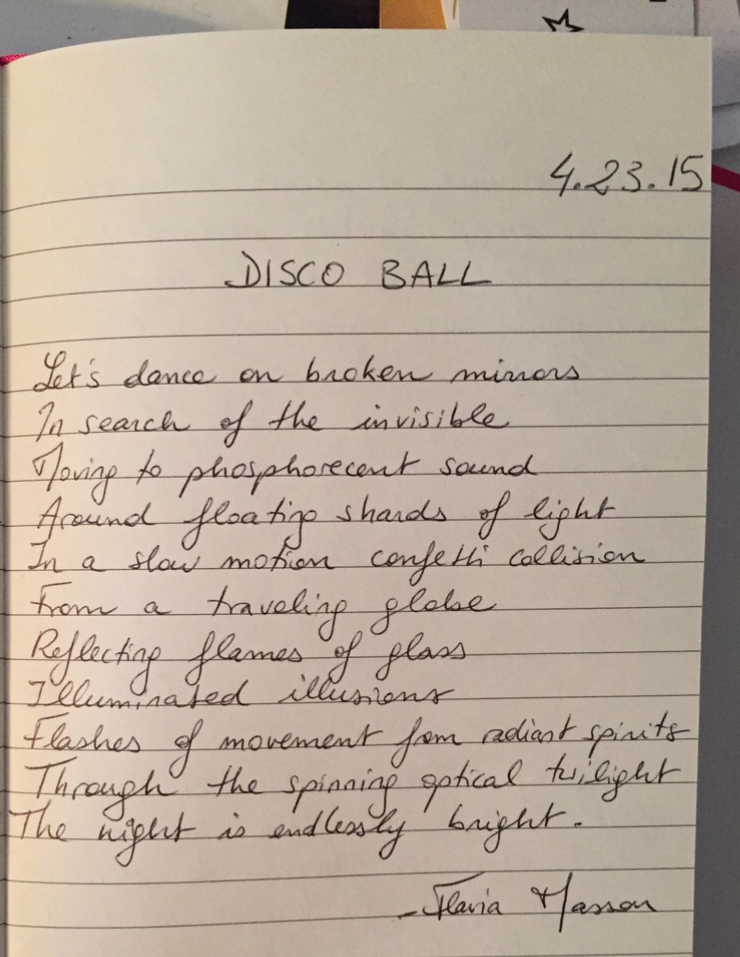 4.23.15
DISCO BALL
Let's dance on broken mirrors
In search of the invisible
Moving to phosphorecent sound
Around floating shards of light
In a slow motion confetti collision
From a traveling globe
Reflecting flames of glass
Illuminated illusions
Flashes of movement from radiant spirits
Through the spinning optical twilight
The night is endlessly bright.
- Flavia Masson